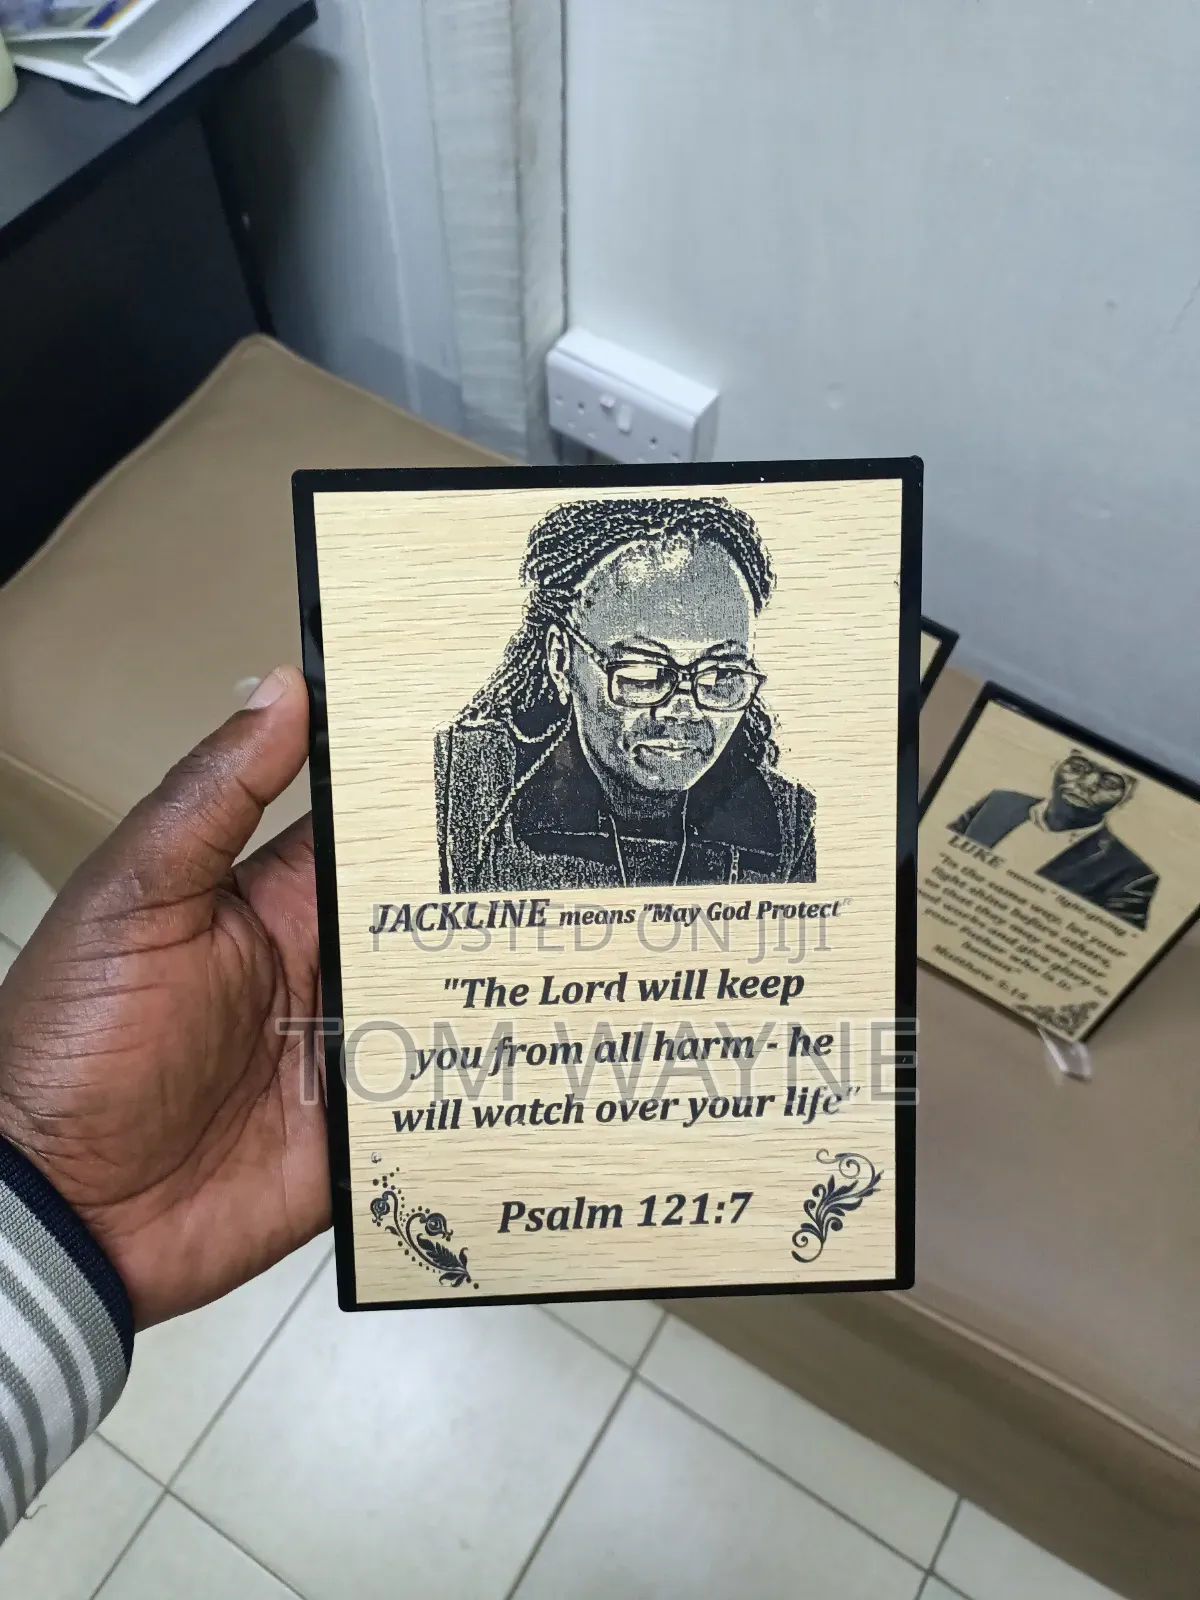 JACKLINE means "May God Protect"
POSTED ON JIJI
"The Lord will keep
TOM WAYNE
you from all harm - he
will watch over your life"
Psalm 121:7
LUKE means "light-giving"
"In the same way, let your
light shine before others,
so that they may see your
good works and give glory to
your Father who is in
heaven"
Matthew 5:16